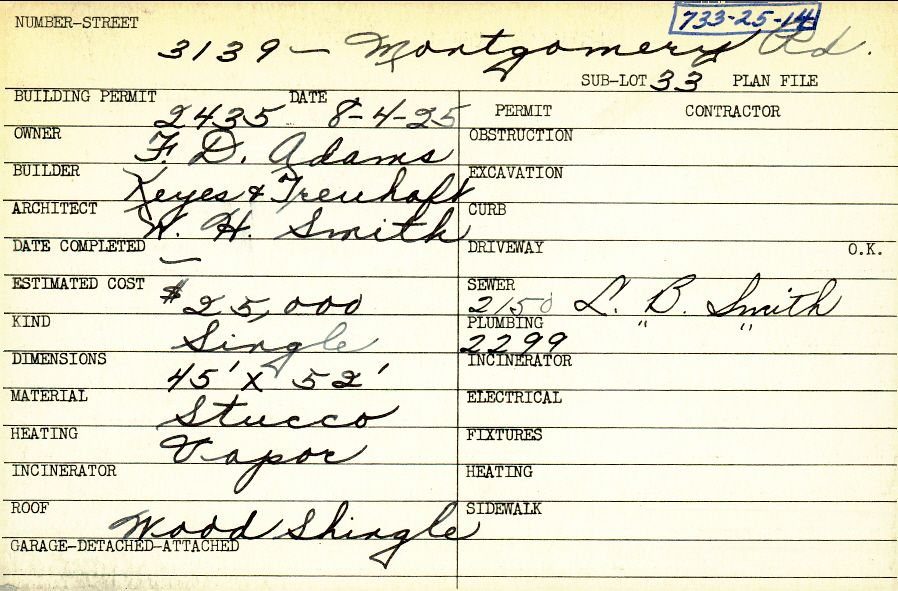 733-25-14
NUMBER-STREET
3139 - Montgomery Rd.
SUB-LOT 33 PLAN FILE
BUILDING PERMIT 2435 DATE 8-4-25
PERMIT CONTRACTOR
OWNER F. D. Adams
OBSTRUCTION
BUILDER Keyes & Treuhaft
EXCAVATION
ARCHITECT W. H. Smith
CURB
DATE COMPLETED —
DRIVEWAY O.K.
ESTIMATED COST $25,000
SEWER 2150 L. B. Smith
KIND Single
PLUMBING 2299 " "
DIMENSIONS 45' x 52'
INCINERATOR
MATERIAL Stucco
ELECTRICAL
HEATING Vapor
FIXTURES
INCINERATOR
HEATING
ROOF Wood Shingle
SIDEWALK
GARAGE-DETACHED-ATTACHED